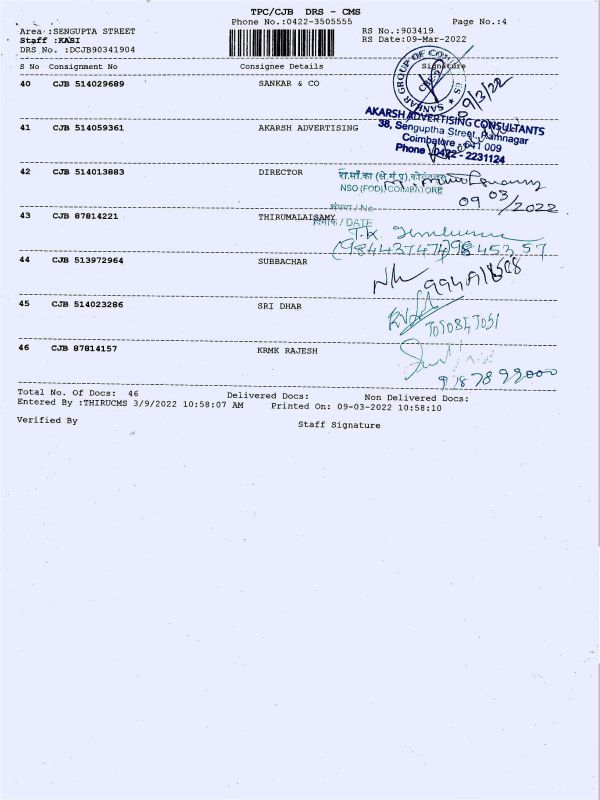 TPC/CJB DRS - CMS
Phone No.:0422-3505555 Page No.:4
Area :SENGUPTA STREET RS No.:903419
Staff :KASI RS Date:09-Mar-2022
DRS No. :DCJB90341904
S No Consignment No Consignee Details Signature
40 CJB 514029689 SANKAR & CO
SANKAR GROUP OF
9/3/22
41 CJB 514059361 AKARSH ADVERTISING
AKARSH ADVERTISING CONSULTANTS
38, Senguptha Street, Ramnagar
Coimbatore - 641 009
Phone : 0422 - 2231124
42 CJB 514013883 DIRECTOR
NSO (FOD), COIMBATORE
09 03/2022
43 CJB 87814221 THIRUMALAISAMY
/ No
/ DATE
T.K.
44 CJB 513972964 SUBBACHAR
45 CJB 514023286 SRI DHAR
46 CJB 87814157 KRMK RAJESH
Total No. Of Docs: 46 Delivered Docs: Non Delivered Docs:
Entered By :THIRUCMS 3/9/2022 10:58:07 AM Printed On: 09-03-2022 10:58:10
Verified By Staff Signature